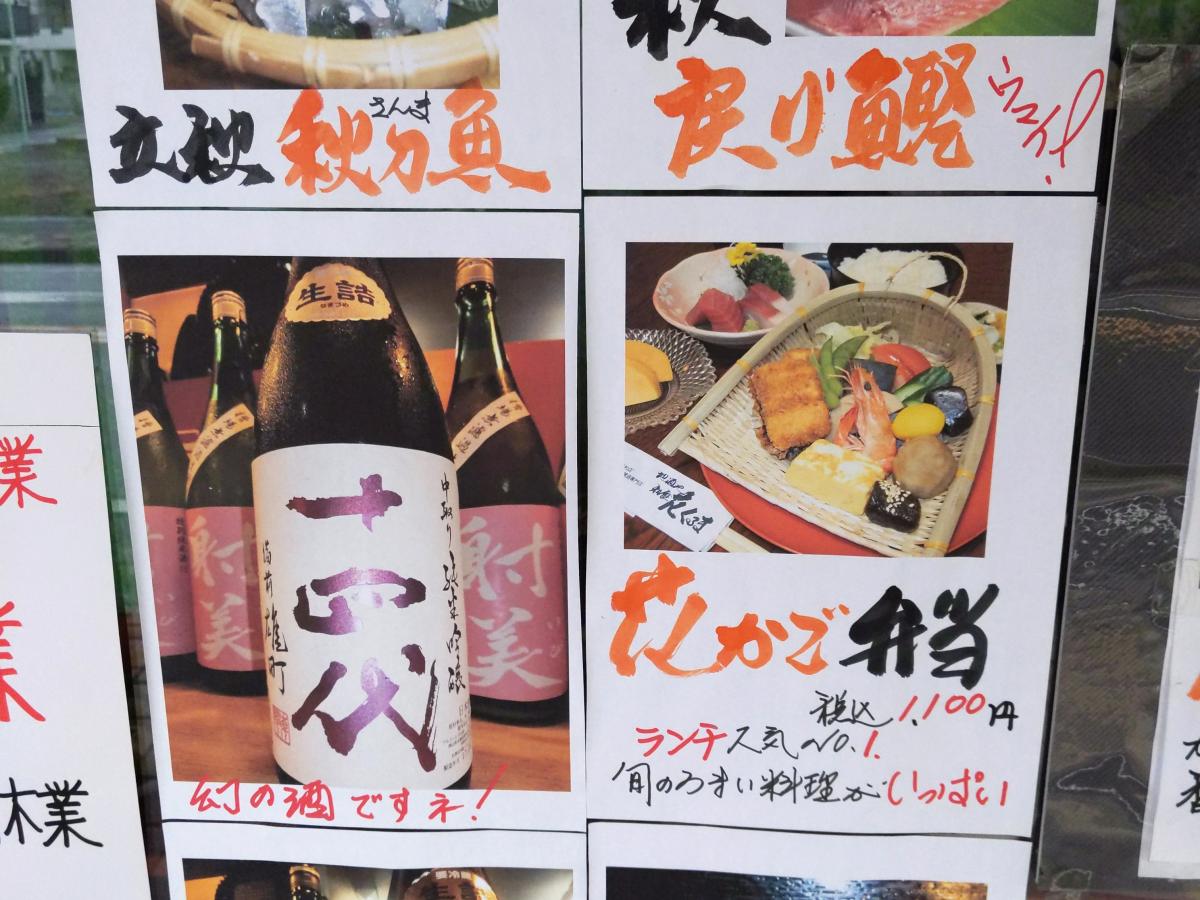 立秋 秋刀魚
さんま
秋
戻り鰹 ウマイ!
生詰
なまづめ
中取り 純米吟醸
十四代
備前雄町
槽場無濾過
射美
射美
幻の酒ですネ!
花ぐるま
花かご弁当
税込 1,100円
ランチ人気NO.1.
旬のうまい料理がいっぱい
業
業
木業
生詰